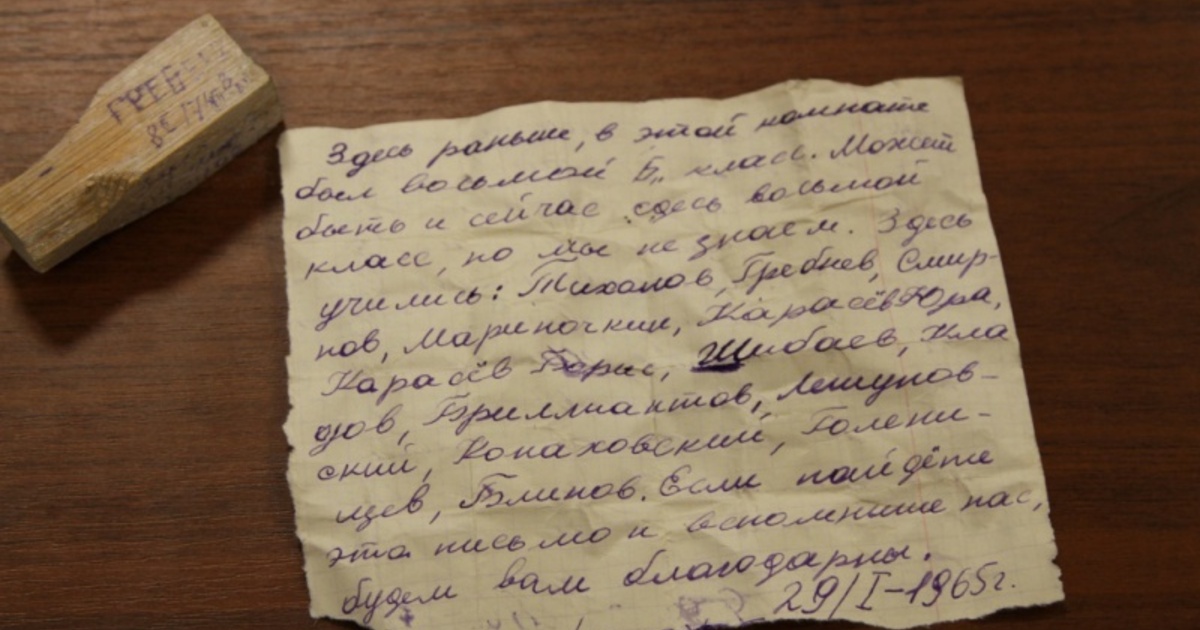 ГРЕБНЕВ
8Е
Здесь раньше, в этой комнате
был восьмой Б, класс. Может
быть и сейчас здесь восьмой
класс, но мы не знаем. Здесь
учились: Тихонов, Гребнев, Смир-
нов, Мариночкин, Карасёв Юра,
Карасёв Борис, Шибаев, Кла
дов, Бриллиантов,
ский, Конаховский, Голени-
щев, Блинов. Если найдёте
это письмо и вспомните нас,
будем вам благодарны.
29/I-1965г.